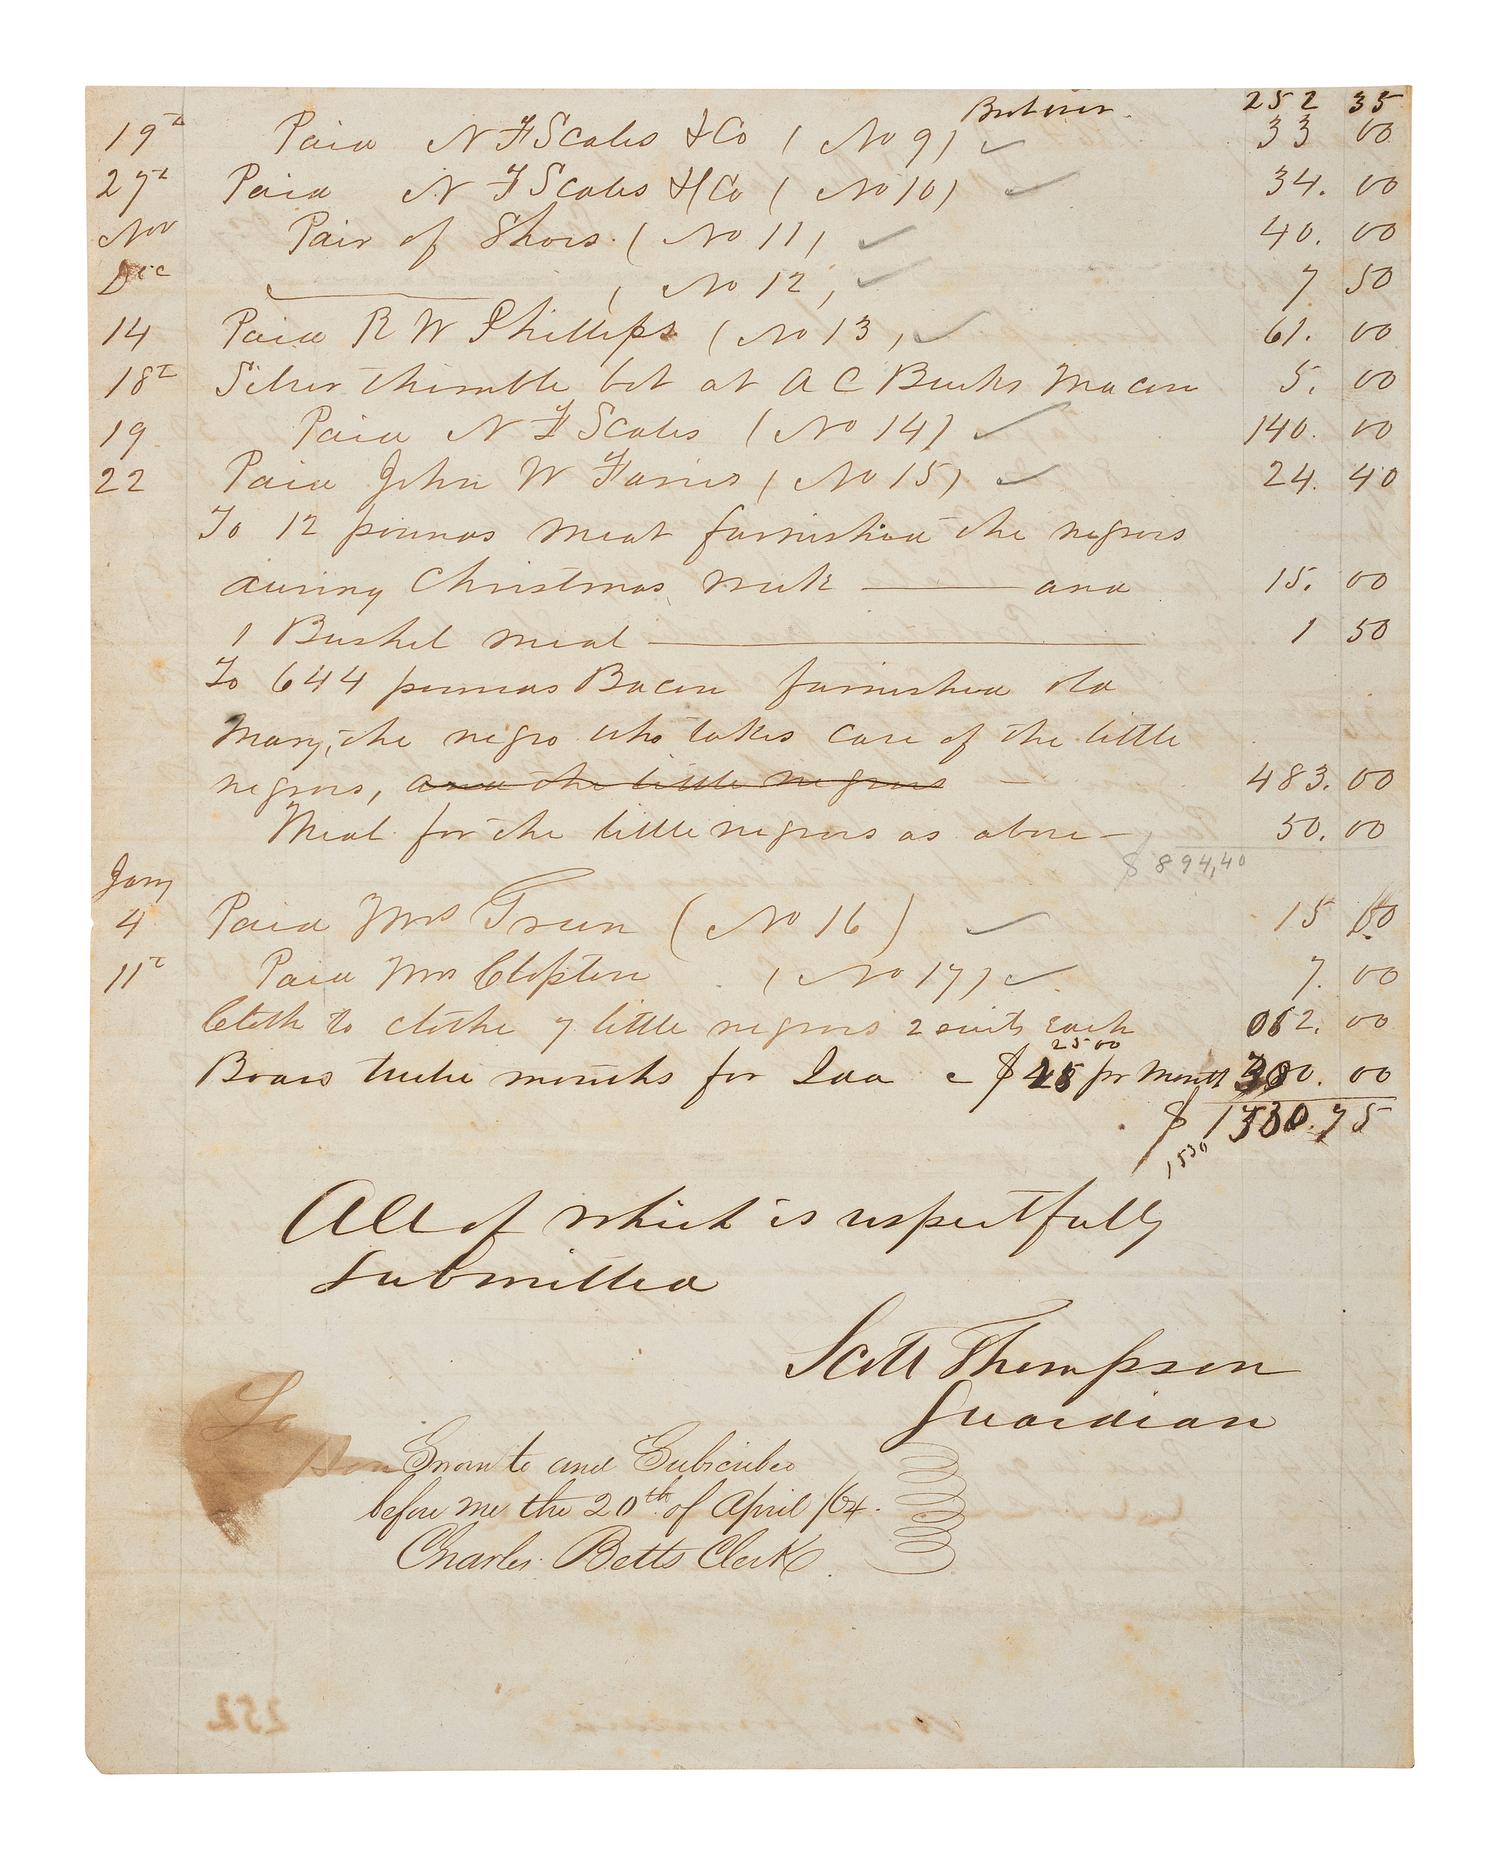 252 35
19th Paid N F Scales & Co ( No 9 ) 33 00
27th Paid N F Scales & Co ( No 10 ) 34. 00
Nov Pair of Shoes ( No 11 ) 40. 00
Dec ( No 12 ) 7 50
14 Paid R W Phillips ( No 13 ) 61. 00
18th Silver thimble bot at A C Burks Macon 5. 00
19 Paid N F Scales ( No 14 ) 140. 00
22 Paid John W Farris ( No 15 ) 24. 40
To 12 pounds meat furnished the negros
during Christmas week — and 15. 00
1 Bushel meal — 1 50
To 644 pounds Bacon furnished old
Mary, the negro who takes care of the little
negros, and the little negros — 483. 00
Meal for the little negros as above — 50. 00
$ 894,40
Jany
4 Paid Mrs Green ( No 16 ) 15 00
11th Paid Mrs Clopton ( No 17 ) 7. 00
Cloth to clothe 7 little negros 2 suits each 62. 00
25 00
Board twelve months for Ida @ $ 25 pr Month 300. 00
$ 1530.75
1530
All of which is respectfully
submitted
Scott Thompson
Guardian
Sworn to and Subscribed
before me the 20th of April /64.
Charles Betts Clerk
252